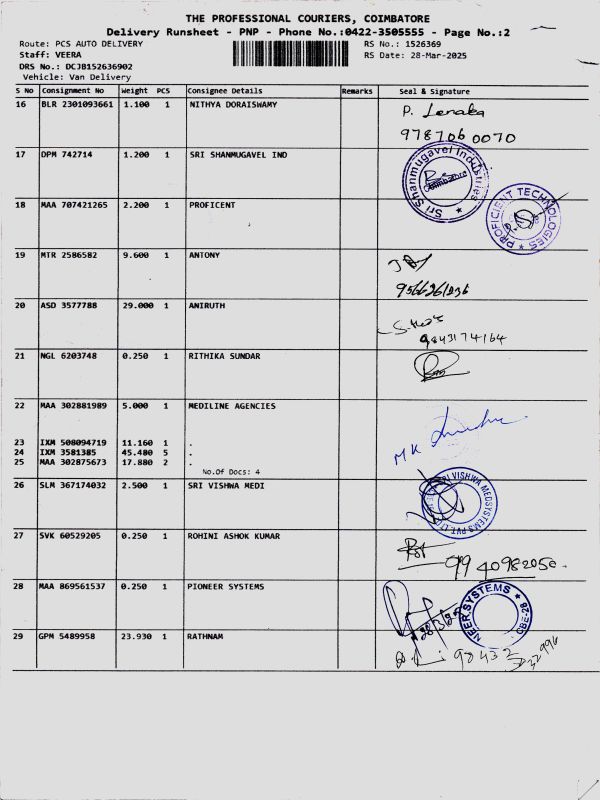 THE PROFESSIONAL COURIERS, COIMBATORE
Delivery Runsheet - PNP - Phone No.:0422-3505555 - Page No.:2
Route: PCS AUTO DELIVERY RS No.: 1526369
Staff: VEERA RS Date: 28-Mar-2025
DRS No.: DCJB152636902
Vehicle: Van Delivery
S No Consignment No Weight PCS Consignee Details Remarks Seal & Signature
16 BLR 2301093661 1.100 1 NITHYA DORAISWAMY P. Lenaka
9787060070
17 DPM 742714 1.200 1 SRI SHANMUGAVEL IND Sri Shanmugavel Industries Coimbatore
18 MAA 707421265 2.200 1 PROFICENT PROFICIENT TECHNOLOGIES
19 MTR 2586582 9.600 1 ANTONY
20 ASD 3577788 29.000 1 ANIRUTH
9843174164
21 NGL 6203748 0.250 1 RITHIKA SUNDAR
22 MAA 302881989 5.000 1 MEDILINE AGENCIES
MK
23 IXM 508094719 11.160 1 .
24 IXM 3581385 45.480 5 .
25 MAA 302875673 17.880 2 .
No.Of Docs: 4
26 SLM 367174032 2.500 1 SRI VISHWA MEDI SRI VISHWA MEDSYSTEMS PVT. LTD
27 SVK 60529205 0.250 1 ROHINI ASHOK KUMAR
9940982050
28 MAA 869561537 0.250 1 PIONEER SYSTEMS NEER SYSTEMS CBE-28
29 GPM 5489958 23.930 1 RATHNAM
98432